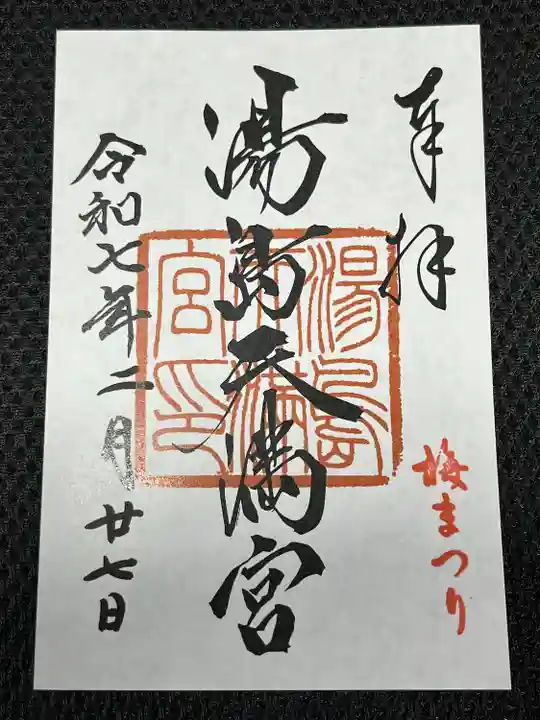 奉拝
梅まつり
湯島天満宮
湯島
天満
宮印
令和七年二月廿七日